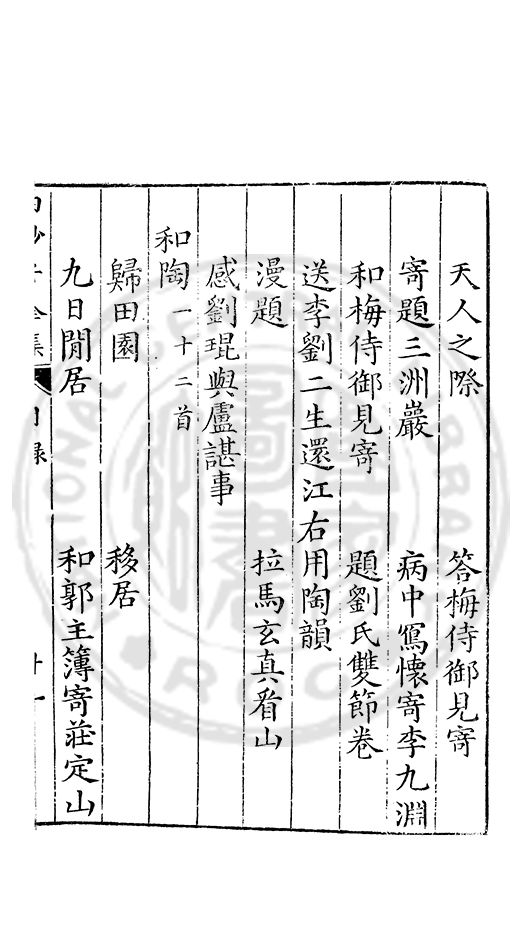 天人之際　答梅侍御見寄
寄題三洲巖　病中寫懷寄李九淵
和梅侍御見寄　題劉氏雙節卷
送李劉二生還江右用陶韻
漫題　拉馬玄真看山
感劉琨與盧諶事
和陶一十二首
歸田園　移居
九日閒居　和郭主簿寄莊定山